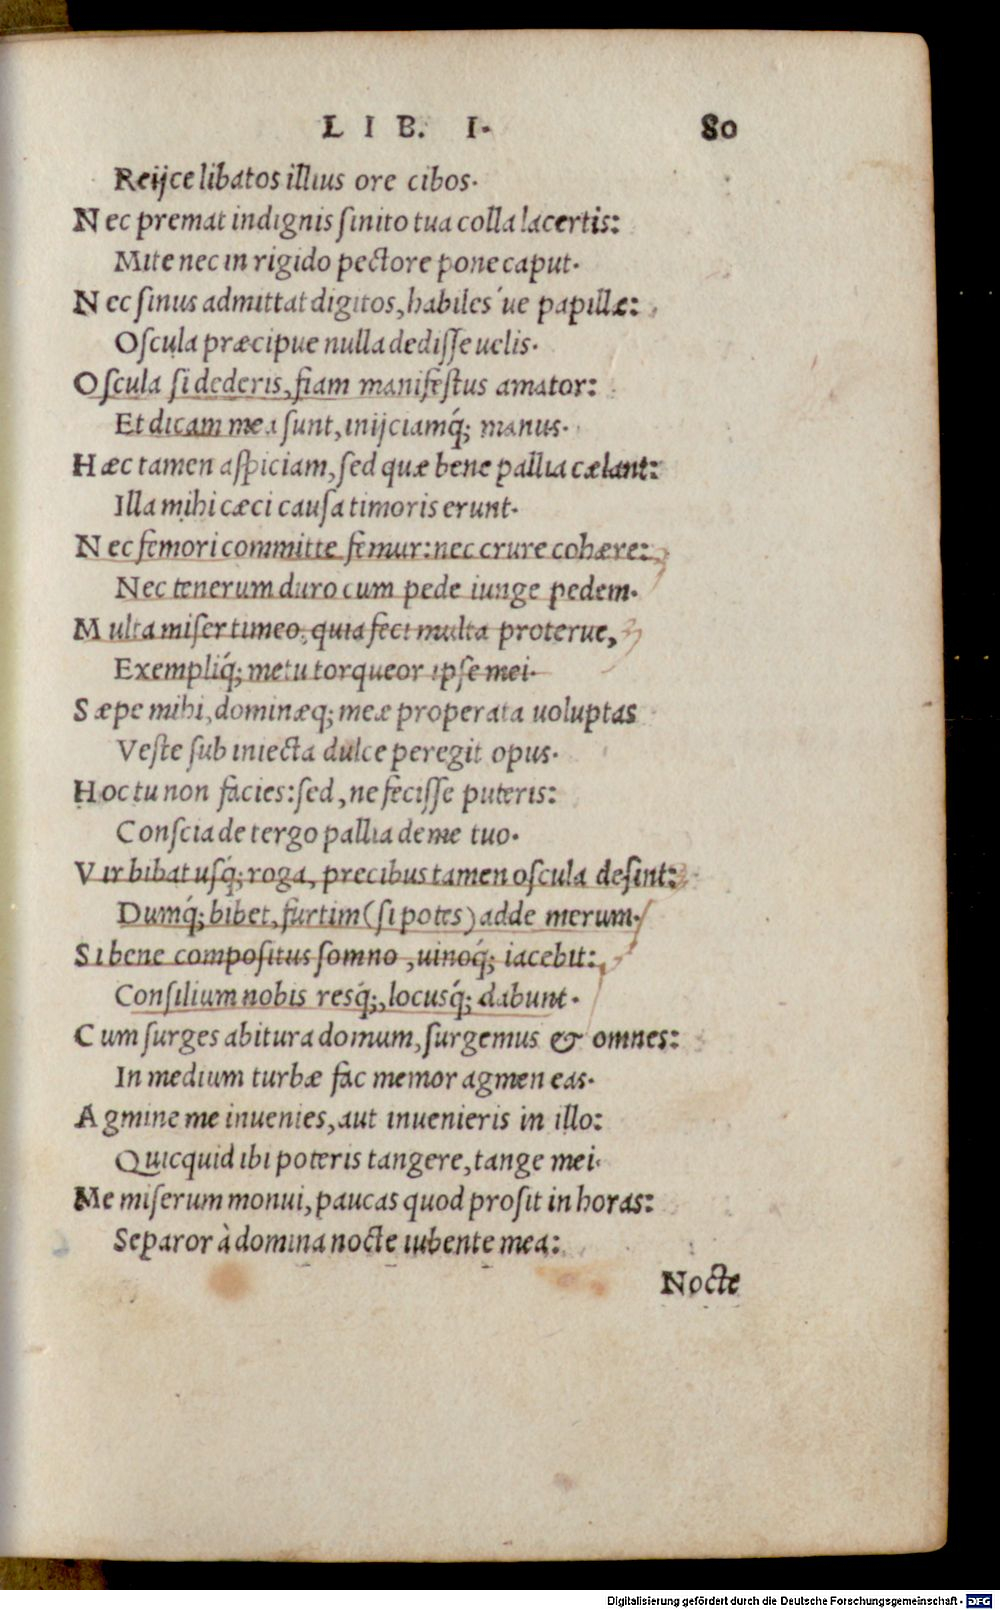 LIB. I. 80
Reijce libatos illius ore cibos.
Nec premat indignis ſinito tua colla lacertis:
Mite nec in rigido pectore pone caput.
Nec ſinus admittat digitos, habiles´ue papillæ:
Oſcula præcipue nulla dediſſe uelis.
Oſcula ſi dederis, fiam manifeſtus amator:
Et dicam mea ſunt, inijciamq́; manus.
Hæc tamen aſpiciam, ſed quæ bene pallia cælant:
Illa mihi cæci cauſa timoris erunt.
Nec femori committe femur: nec crure cohære:
Nec tenerum duro cum pede iunge pedem.
Multa miſer timeo, quia feci multa proterue,
Exempliq́; metu torqueor ipſe mei.
Sæpe mihi, dominæq; meæ properata uoluptas
Veſte ſub iniecta dulce peregit opus.
Hoc tu non facies: ſed, ne feciſſe puteris:
Conſcia de tergo pallia deme tuo.
Vir bibat uſq́; roga, precibus tamen oſcula deſint:
Dumq́; bibet, furtim (ſi potes) adde merum.
Si bene compoſitus ſomno, uinoq́; iacebit:
Conſilium nobis resq́;, locusq́; dabunt.
Cum ſurges abitura domum, ſurgemus & omnes:
In medium turbæ fac memor agmen eas.
Agmine me inuenies, aut inuenieris in illo:
Quicquid ibi poteris tangere, tange mei.
Me miſerum monui, paucas quod proſit in horas:
Separor à domina nocte iubente mea:
Nocte
Digitalisierung gefördert durch die Deutsche Forschungsgemeinschaft - DFG